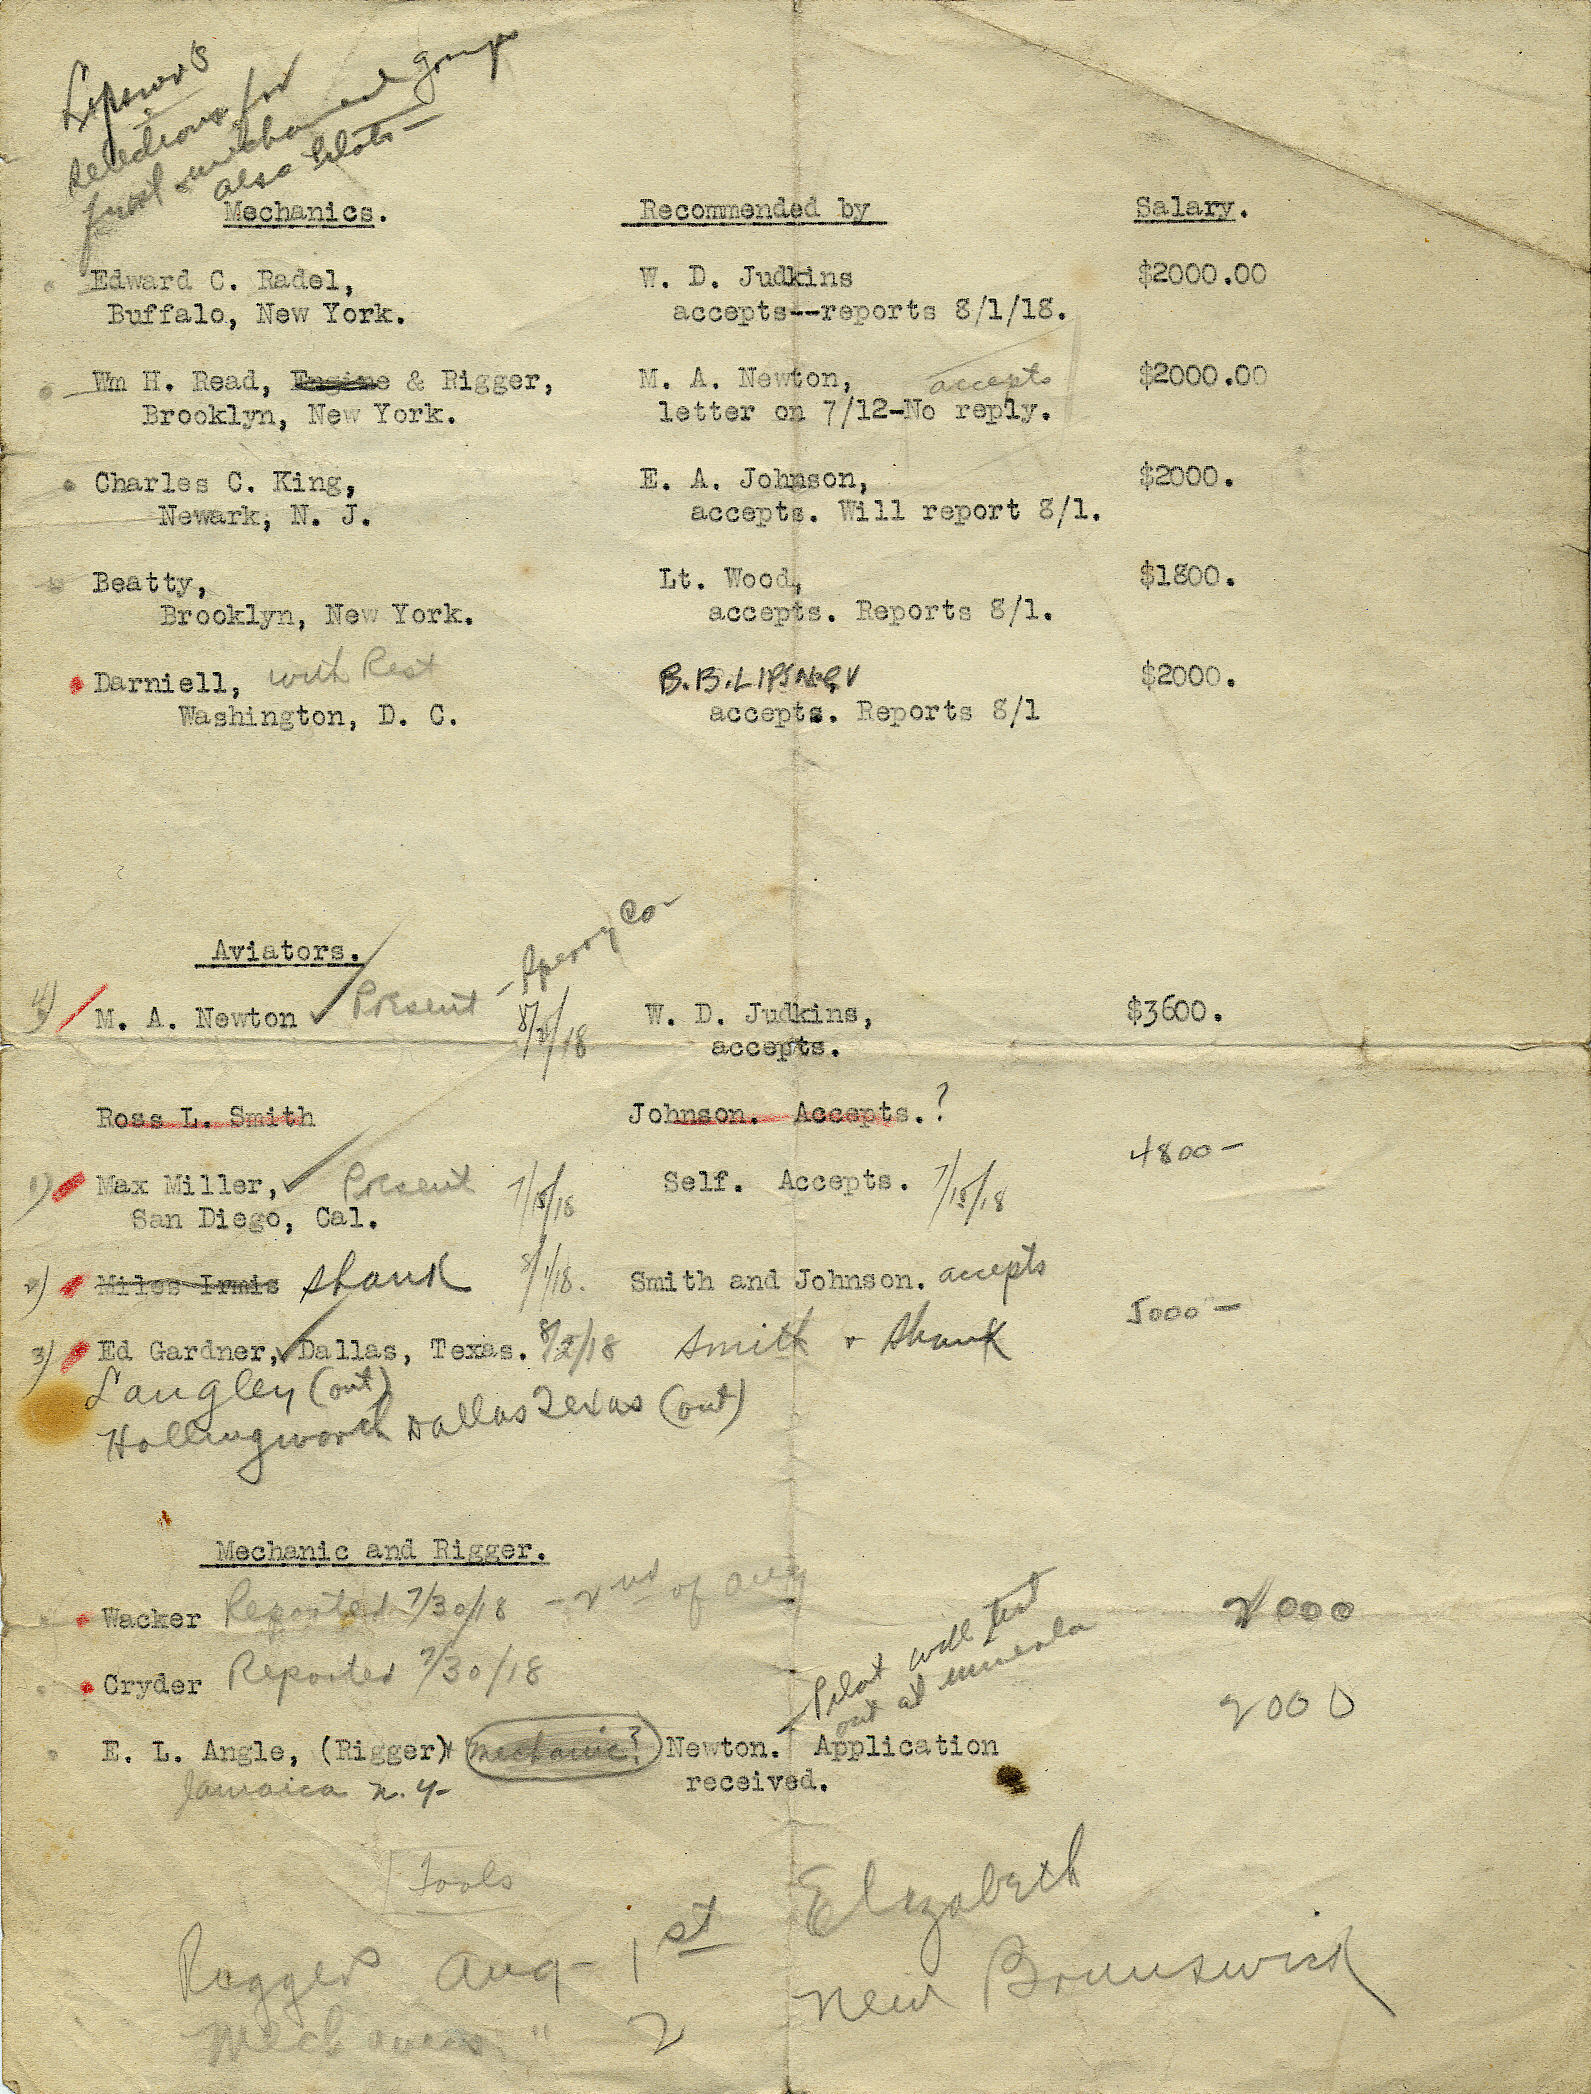 Lipsner's
selections for
first mechanical groups
also Pilots —
Mechanics. Recommended by Salary.
Edward C. Radel, W. D. Judkins $2000.00
Buffalo, New York. accepts--reports 8/1/18.
Wm H. Read, Engine & Rigger, M. A. Newton, accepts $2000.00
Brooklyn, New York. letter on 7/12-No reply.
Charles C. King, E. A. Johnson, $2000.
Newark, N. J. accepts. Will report 8/1.
Beatty, Lt. Wood, $1800.
Brooklyn, New York. accepts. Reports 8/1.
Darniell, with Rest B.B. LIPSNER $2000.
Washington, D. C. accepts. Reports 8/1
Aviators.
4) M. A. Newton Present - Sperry Co- 8/2/18 W. D. Judkins, $3600.
accepts.
Ross L. Smith Johnson. Accepts.?
4800 —
1) Max Miller, Present 7/15/18 Self. Accepts. 7/15/18
San Diego, Cal.
2) Miles Irmis Shank 8/1/18. Smith and Johnson. accepts
5000 —
3) Ed Gardner, Dallas, Texas. 8/2/18 Smith + Shank
Langley (out)
Hollingworth Dallas Texas (out)
Mechanic and Rigger.
Wacker Reported 7/30/18 - 2nd of Aug 2000
Cryder Reported 7/30/18 2000
Pilot will test
out at mineola
E. L. Angle, (Rigger) mechanic? Newton. Application
Jamaica N.Y- received.
Tools
Elizabeth
Riggers Aug- 1st New Brunswick
Mechanics " 2